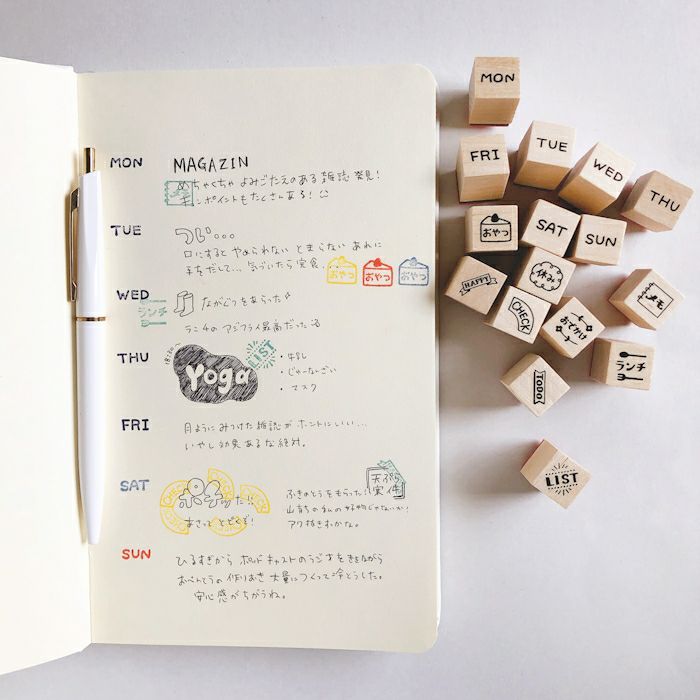 MON
MAGAZIN
めちゃくちゃ よみごたえのある 雑誌 発見!
ポイントもたくさんある!
TUE
つい...
口にすると やめられない とまらない あれに
手をだして... 気づいたら完食...
おやつ
おやつ
おやつ
WED
ランチ
ながぐつをあらった
ランチのアジフライ最高だった
THU
Yoga
LIST
・牛乳
・マスク
FRI
月ようにみつけた雑誌が ホントにいい...
いやし効果あるな絶対。
SAT
CHECK
ポチッた!!
あさって とどくぞ!
天ぷら
実作
ふきのとうをもらった!
山育ちの私の好物じゃないか!
アク抜きわかな。
SUN
ひるすぎから ポッドキャストのラジオをききながら
おべんとうの作りおき 大量につくって冷とうした。
安心感がちがうね。
MON
FRI
TUE
WED
THU
おやつ
SAT
SUN
HAPPY
休み
CHECK
おでかけ
メモ
TODO
ランチ
LIST